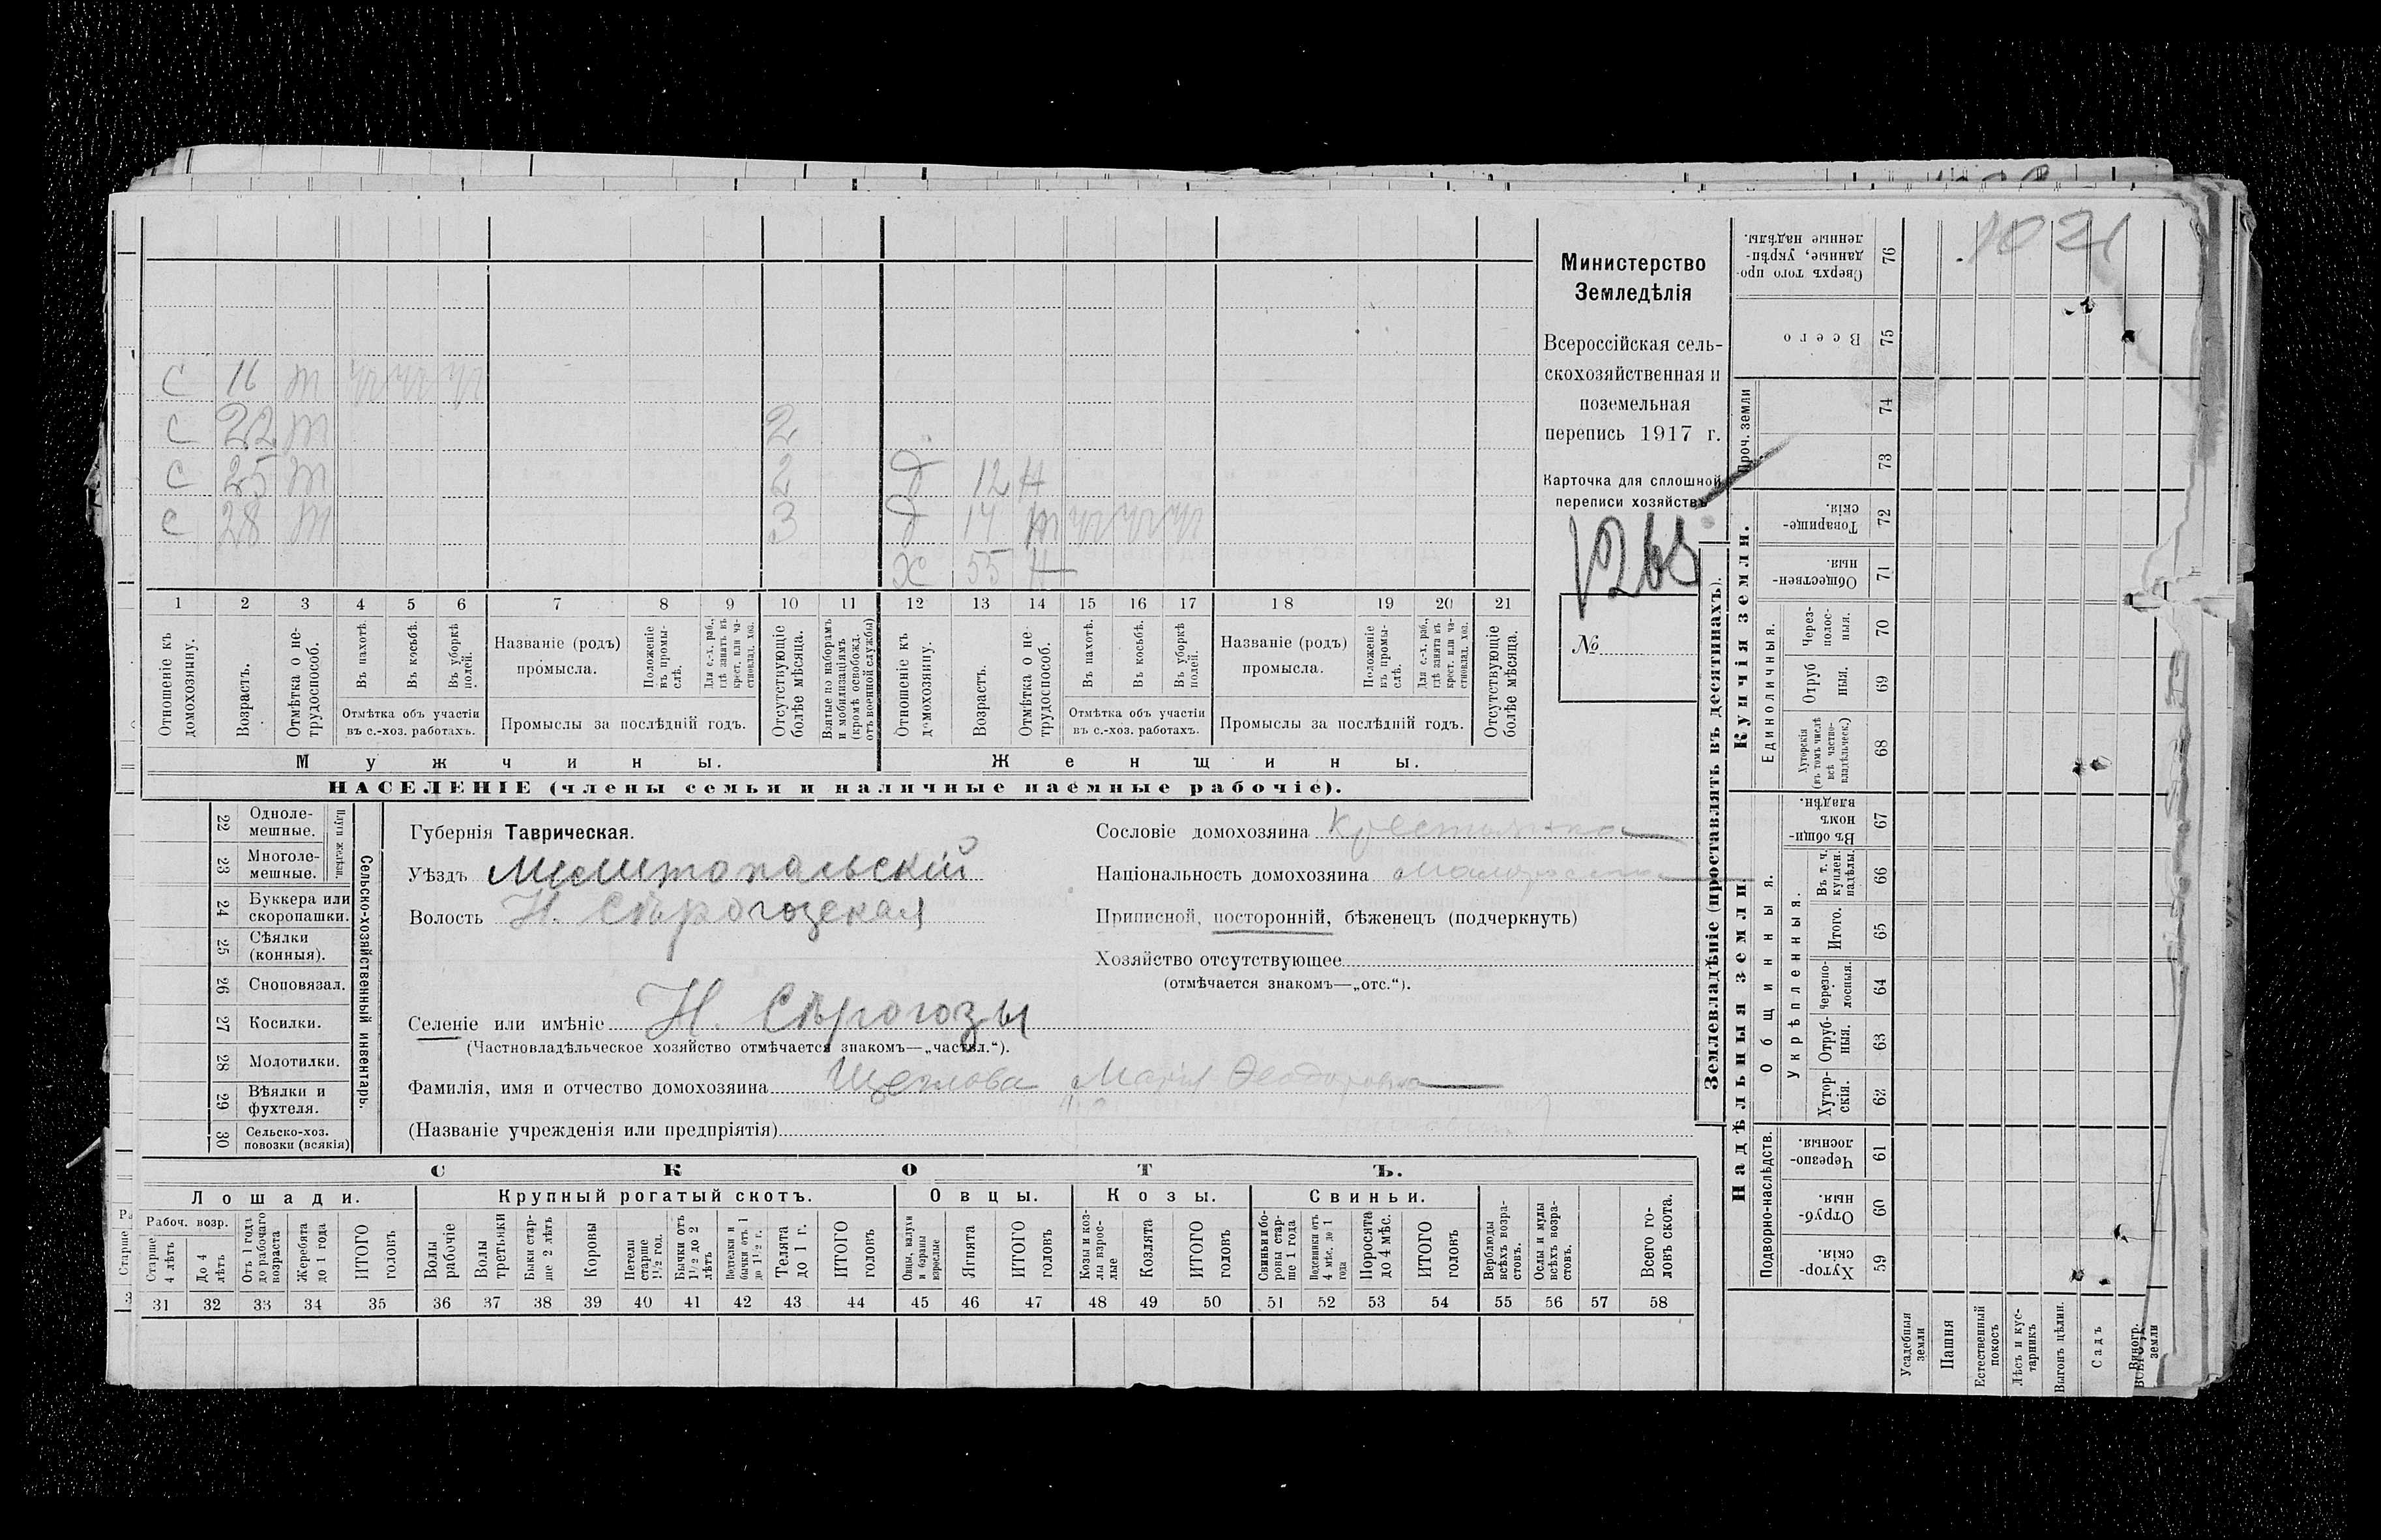 1021
Министерство
Земледѣлія
Всероссійская сель-
скохозяйственная и
поземельная
перепись 1917 г.
Карточка для сплошной
переписи хозяйствъ
№
С 16 т
С 22 т 2
С 25 т 2 д 12 н
С 28 т 3 д 14 т
х 55 н
1 2 3 4 5 6 7 8 9 10 11 12 13 14 15 16 17 18 19 20 21
Отношеніе къ домохозяину.
Возрастъ.
Отмѣтка о не-трудоспособ.
Въ пахотѣ.
Въ косьбѣ.
Въ уборкѣ полей.
Отмѣтка объ участіи
въ с.-хоз. работахъ.
Названіе (родъ)
промысла.
Положеніе въ промы-слѣ.
Для с.-х. раб., гдѣ занятъ въ крест. или ча-стновлад. хоз.
Промыслы за послѣдній годъ.
Отсутствующіе болѣе мѣсяца.
Взятые по наборамъ и мобилизаціямъ (кромѣ освобожд. отъ военной службы)
Отношеніе къ домохозяину.
Возрастъ.
Отмѣтка о не-трудоспособ.
Въ пахотѣ.
Въ косьбѣ.
Въ уборкѣ полей.
Отмѣтка объ участіи
въ с.-хоз. работахъ.
Названіе (родъ)
промысла.
Положеніе въ промы-слѣ.
Для с.-х. раб., гдѣ занята въ крест. или ча-стновлад. хоз.
Промыслы за послѣдній годъ.
Отсутствующіе болѣе мѣсяца.
Мужчины.
Женщины.
НАСЕЛЕНІЕ (члены семьи и наличные наемные рабочіе).
Сельско-хозяйственный инвентарь.
Плуги желѣзн.
22 Одноле-мешные.
23 Многоле-мешные.
24 Буккера или скоропашки.
25 Сѣялки (конныя).
26 Сноповязал.
27 Косилки.
28 Молотилки.
29 Вѣялки и фухтеля.
30 Сельско-хоз. повозки (всякія)
Губернія Таврическая.
Уѣздъ Мелитопальскій
Волость Н. Сѣрогозская
Селеніе или имѣніе Н. Сѣрогозы
(Частновладѣльческое хозяйство отмѣчается знакомъ—„частвл.“).
Фамилія, имя и отчество домохозяина Щеглова Марія Феодоровна
(Названіе учрежденія или предпріятія)
Сословіе домохозяина Крестьянка
Національность домохозяина Малоросска
Приписной, посторонній, бѣженецъ (подчеркнуть)
Хозяйство отсутствующее
(отмѣчается знакомъ—„отс.“).
СКОТЪ.
Лошади.
Крупный рогатый скотъ.
Овцы.
Козы.
Свиньи.
Рабоч. возр.
Старше 4 лѣтъ
До 4 лѣтъ
Отъ 1 года до рабочаго возраста
Жеребята до 1 года
ИТОГО головъ
Волы рабочіе
Волы третьяки
Быки стар-ше 2 лѣтъ
Коровы
Нетели старше 1½ год.
Бычки отъ 1½ до 2 лѣтъ
Подтелки и бычки отъ 1 до 1½ г.
Телята до 1 г.
ИТОГО головъ
Овцы, валухи и бараны взрослые
Ягнята
ИТОГО головъ
Козы и коз-лы взрос-лые
Козлята
ИТОГО головъ
Свиньи и бо-ровы стар-ше 1 года
Подсвинки отъ 4 мѣс. до 1 года
Поросята до 4 мѣс.
ИТОГО головъ
Верблюды всѣхъ возра-стовъ.
Ослы и мулы всѣхъ возра-стовъ.
Всего го-ловъ скота.
31 32 33 34 35 36 37 38 39 40 41 42 43 44 45 46 47 48 49 50 51 52 53 54 55 56 57 58
Землевладѣніе (проставлять въ десятинахъ).
Сверхъ того про-данные, укрѣп-ленные надѣлы. 76
Всего 75
Проч. земли
74
73
Купчія земли.
Товарище-скія. 72
Обществен-ныя. 71
Единоличныя.
Через-полос-ныя. 70
Отруб ныя. 69
Хуторскія (въ томъ числѣ всѣ частно-владѣльческ.) 68
Надѣльныя земли.
Общинныя.
Въ общи-номъ владѣн. 67
Укрѣпленныя.
Въ т. ч. куплен. надѣлы. 66
Итого. 65
Черезпо-лосныя. 64
Отруб-ныя. 63
Хутор-скія. 62
Подворно-наслѣдств.
Черезпо-лосныя. 61
Отруб-ныя. 60
Хутор-скія. 59
Усадебныя земли
Пашня
Естественный покосъ
Лѣсъ и кус-тарникъ
Выгонъ цѣлин.
Садъ